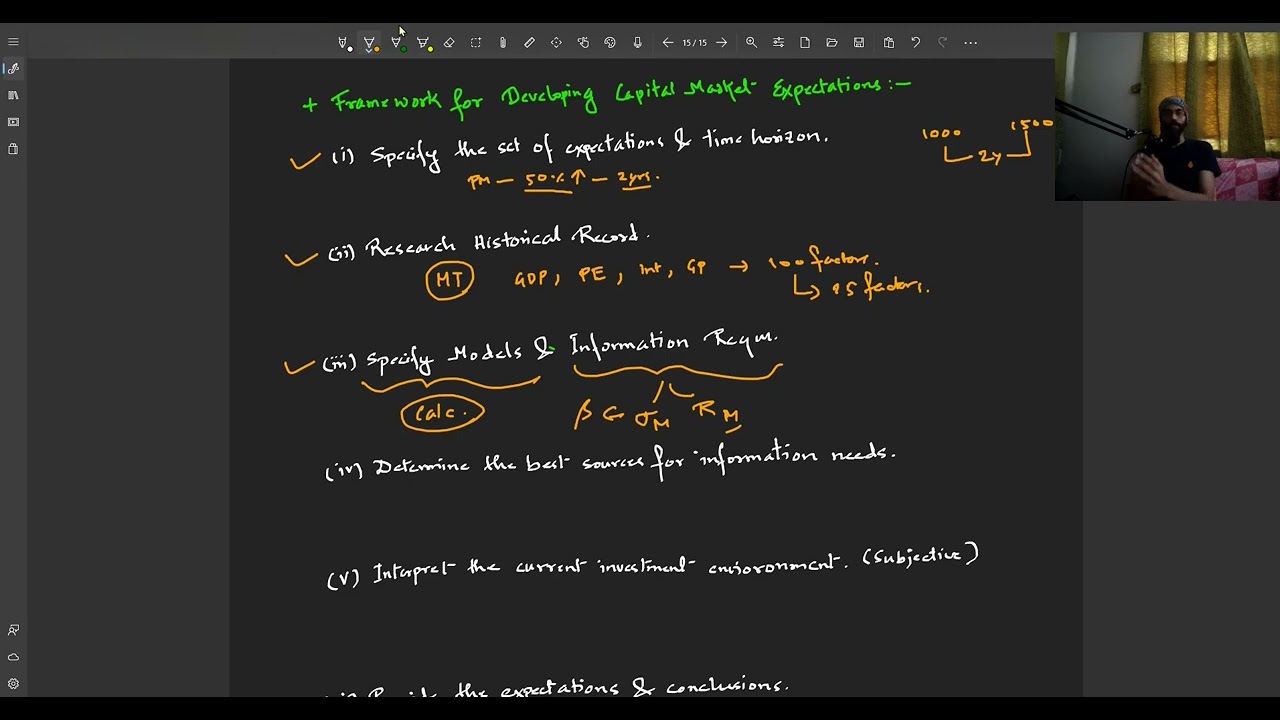 15/15
+ Framework for Developing Capital Market Expectations:-
(i) Specify the set of expectations & time horizon.
1000 1500
2y
PM - 50% ↑ - 2yrs.
(ii) Research Historical Record.
MT GDP, PE, int, GP → 100 factors.
↳ 25 factors.
(iii) Specify Models & Information Reqm.
Calc.
β σM RM
(iv) Determine the best sources for information needs.
(v) Interpret the current investment environment. (Subjective)
the expectations & conclusions.